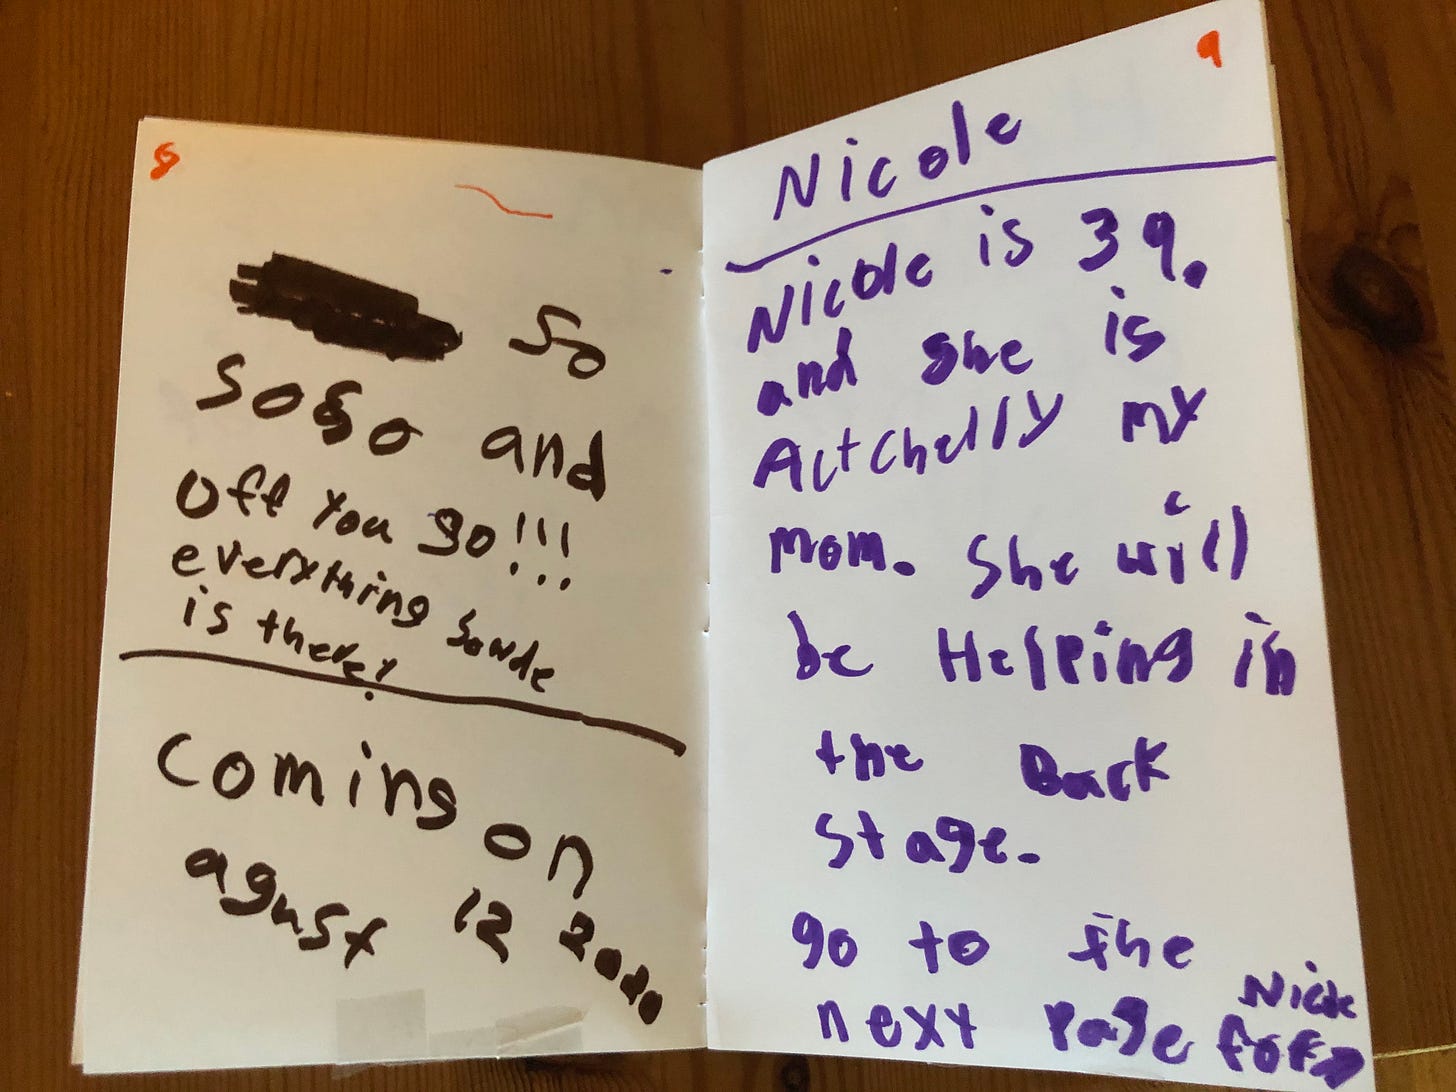 8
So
SoSo and
off You go!!!
everything Sowde
is there!
coming on
agust 12 2020
9
Nicole
Nicole is 39.
and she is
Actchelly my
mom. She will
be Helping in
the Back
stage.
go to the
next page for
Nicole